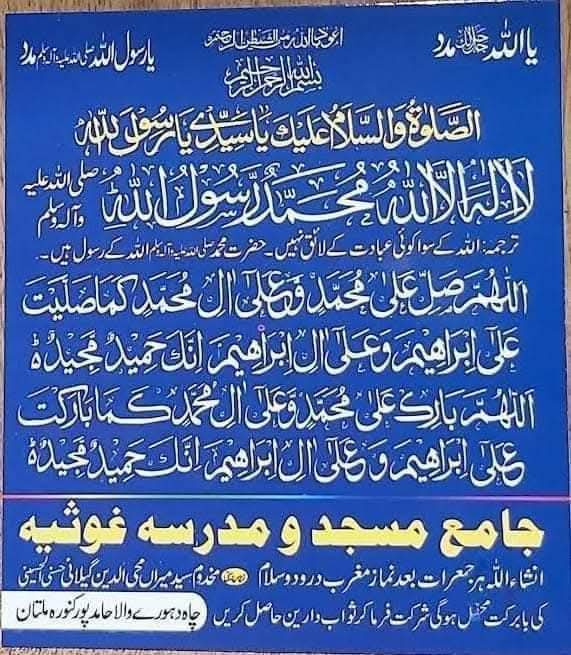 یا اللہ جل جلالہ مدد
اعوذ باللہ من الشیطٰن الرجیم
یا رسول اللہ صلی اللہ علیہ وآلہ وسلم مدد
بسم اللہ الرحمن الرحیم
الصَّلوٰةُ وَالسَّلَامُ عَلَیْكَ یَا سَیِّدِیْ یَا رَسُوْلَ اللّٰہ
لَا اِلٰهَ اِلَّا اللّٰهُ مُحَمَّدٌ رَّسُوْلُ اللّٰهِ صلی اللہ علیہ وآلہ وسلم
ترجمہ: اللہ کے سوا کوئی عبادت کے لائق نہیں۔ حضرت محمد صلی اللہ علیہ وآلہ وسلم اللہ کے رسول ہیں۔
اَللّٰهُمَّ صَلِّ عَلٰی مُحَمَّدٍ وَّعَلٰی اٰلِ مُحَمَّدٍ كَمَا صَلَّیْتَ
عَلٰی اِبْرَاهِیْمَ وَعَلٰی اٰلِ اِبْرَاهِیْمَ اِنَّكَ حَمِیْدٌ مَّجِیْدٌ ۃ
اَللّٰهُمَّ بَارِكْ عَلٰی مُحَمَّدٍ وَّعَلٰی اٰلِ مُحَمَّدٍ كَمَا بَارَكْتَ
عَلٰی اِبْرَاهِیْمَ وَعَلٰی اٰلِ اِبْرَاهِیْمَ اِنَّكَ حَمِیْدٌ مَّجِیْدٌ ۃ
جامع مسجد و مدرسہ غوثیہ
انشاء اللہ ہر جمعرات بعد نماز مغرب درود و سلام مخدوم سید میراں محی الدین گیلانی حسنی حسینی
کی بابرکت محفل ہوگی شرکت فرما کر ثواب دارین حاصل کریں چاہ دہورے والا حامد پور کنورہ ملتان